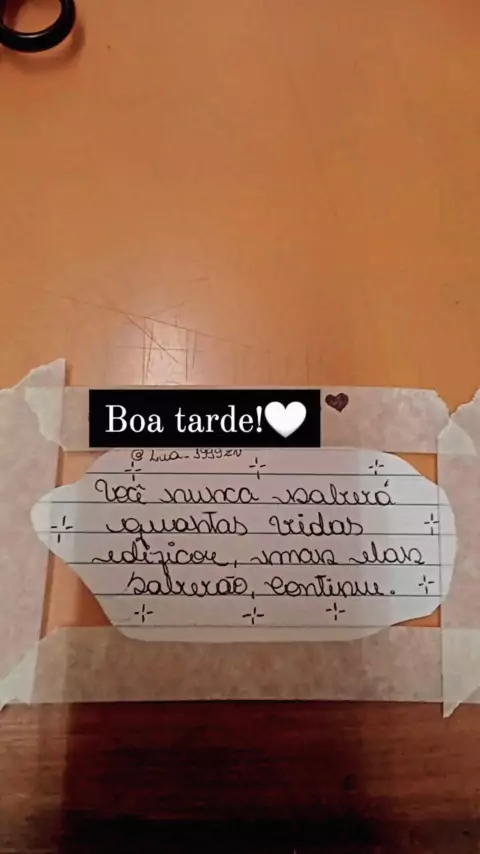 Boa tarde!🤍
@Lua_1999ZN
Você nunca saberá
quantas vidas
edificou, mas elas
saberão, continue.